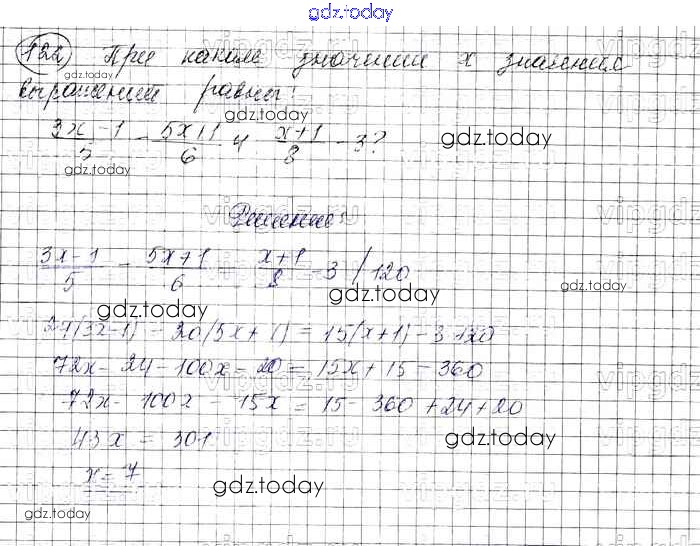 gdz.today
122 При каком значении x значения
gdz.today
выражений равны:
gdz.today
(3x-1)/5 - (5x+1)/6 и (x+1)/8 - 3? gdz.today
gdz.today
Решение:
(3x-1)/5 - (5x+1)/6 = (x+1)/8 - 3 / 120
gdz.today gdz.today gdz.today
24(3x-1) - 20(5x+1) = 15(x+1) - 3·120
72x - 24 - 100x - 20 = 15x + 15 - 360
72x - 100x - 15x = 15 - 360 + 24 + 20
43x = 301 gdz.today
x = 7
gdz.today gdz.today
gdz.today